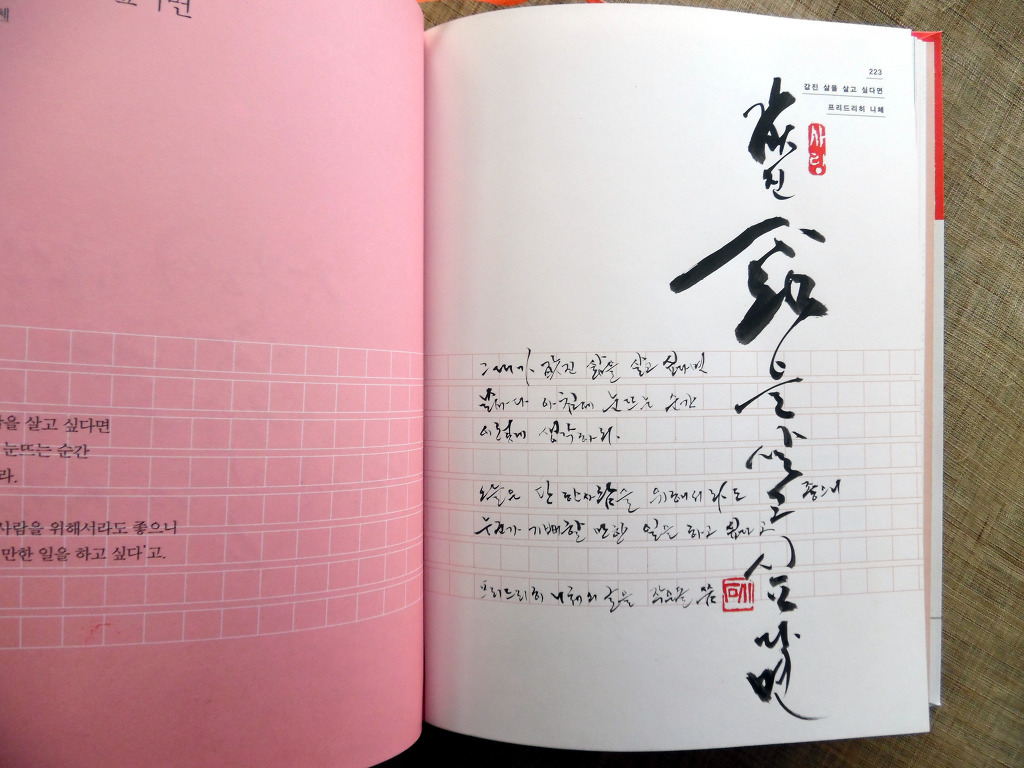 번
체
을 살고 싶다면
눈뜨는 순간
라.
사람을 위해서라도 좋으니
만한 일을 하고 싶다'고.
223
값진 삶을 살고 싶다면
프리드리히 니체
사랑
값진 삶을 살고 싶다면
그대가 값진 삶을 살고 싶다면
날마다 아침에 눈뜨는 순간
이렇게 생각하라.
오늘은 단 한 사람을 위해서라도 좋으니
누군가 기뻐할 만한 일을 하고 싶다고
프리드리히 니체의 글을